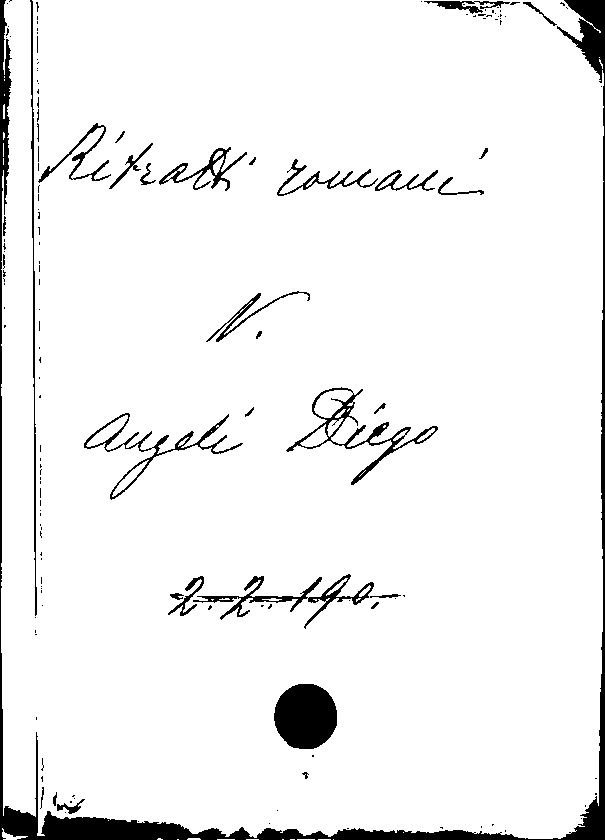 Ritratti romani
V.
Angeli Diego
2.2.190.